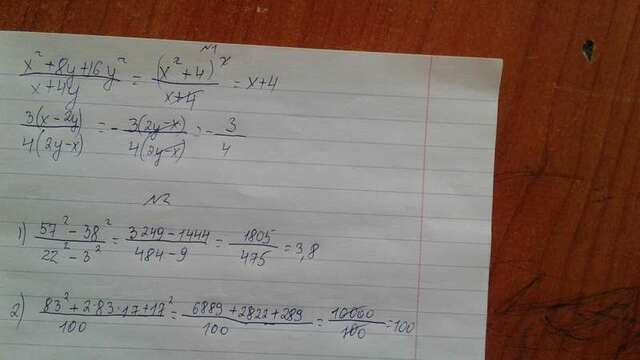 №1
x² + 8y + 6y² / x + 4y = (x² + 4)ˣ / x + 4 = x + 4
3(x - 2y) / 4(2y - x) = - 3(2y - x) / 4(2y - x) = - 3 / 4
№2
1) 57² - 38² / 22² - 3² = 3249 - 1444 / 484 - 9 = 1805 / 475 = 3,8
2) 83² + 2·83·17 + 17² / 100 = 6889 + 2822 + 289 / 100 = 10000 / 100 = 100